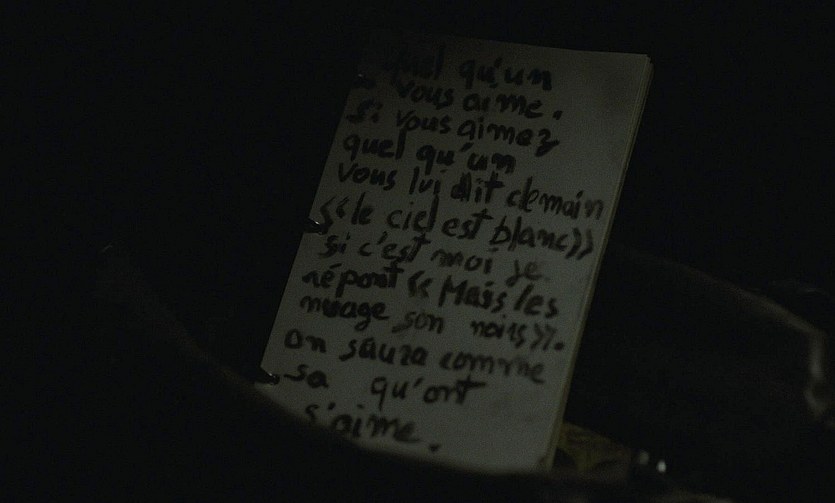 quel qu'un
vous aime.
si vous aimez
quel qu'un
vous lui dit demain
««le ciel est blanc»»
si c'est moi je
répont «« Mais les
nuage son noirs»».
on saura comme
sa qu'ont
s'aime.